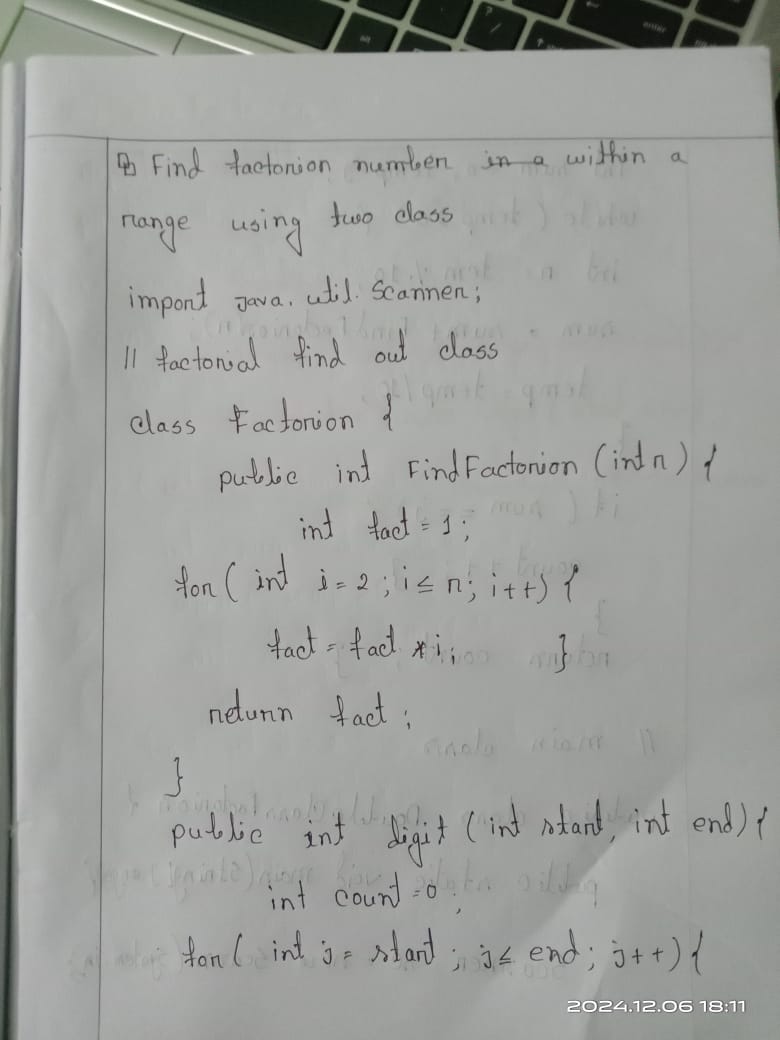 Find factorion number in a within a
range using two class
import java.util.Scanner;
// factorial find out class
class Factorion {
public int FindFactorion (int n) {
int fact = 1;
for( int i = 2 ; i ≤ n; i++) {
fact = fact * i; }
return fact ;
}
public int digit (int start, int end) {
int count = 0;
for( int j = start ; j ≤ end; j++) {
2024.12.06 18:11